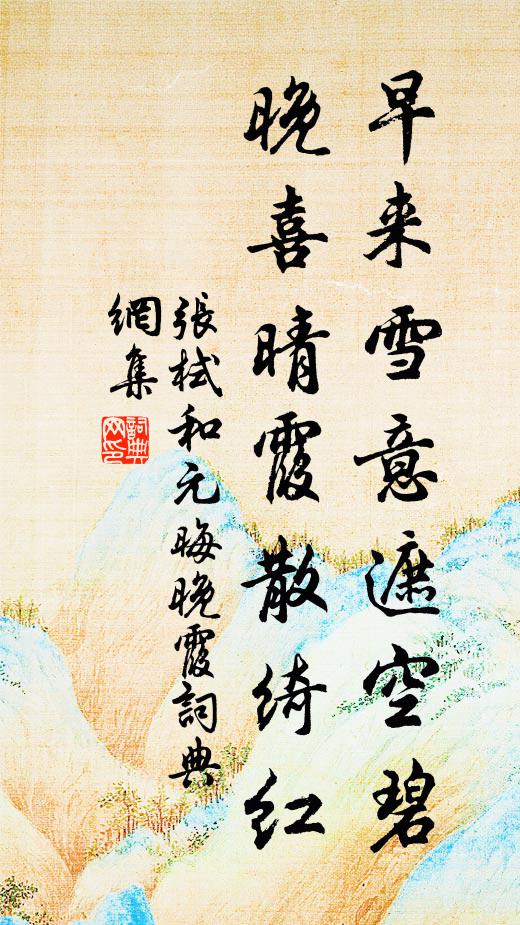 早来雪意遮空碧
晚喜晴霞散绮红
張栻和元晦晚霞詞典
網集
詞典
网印